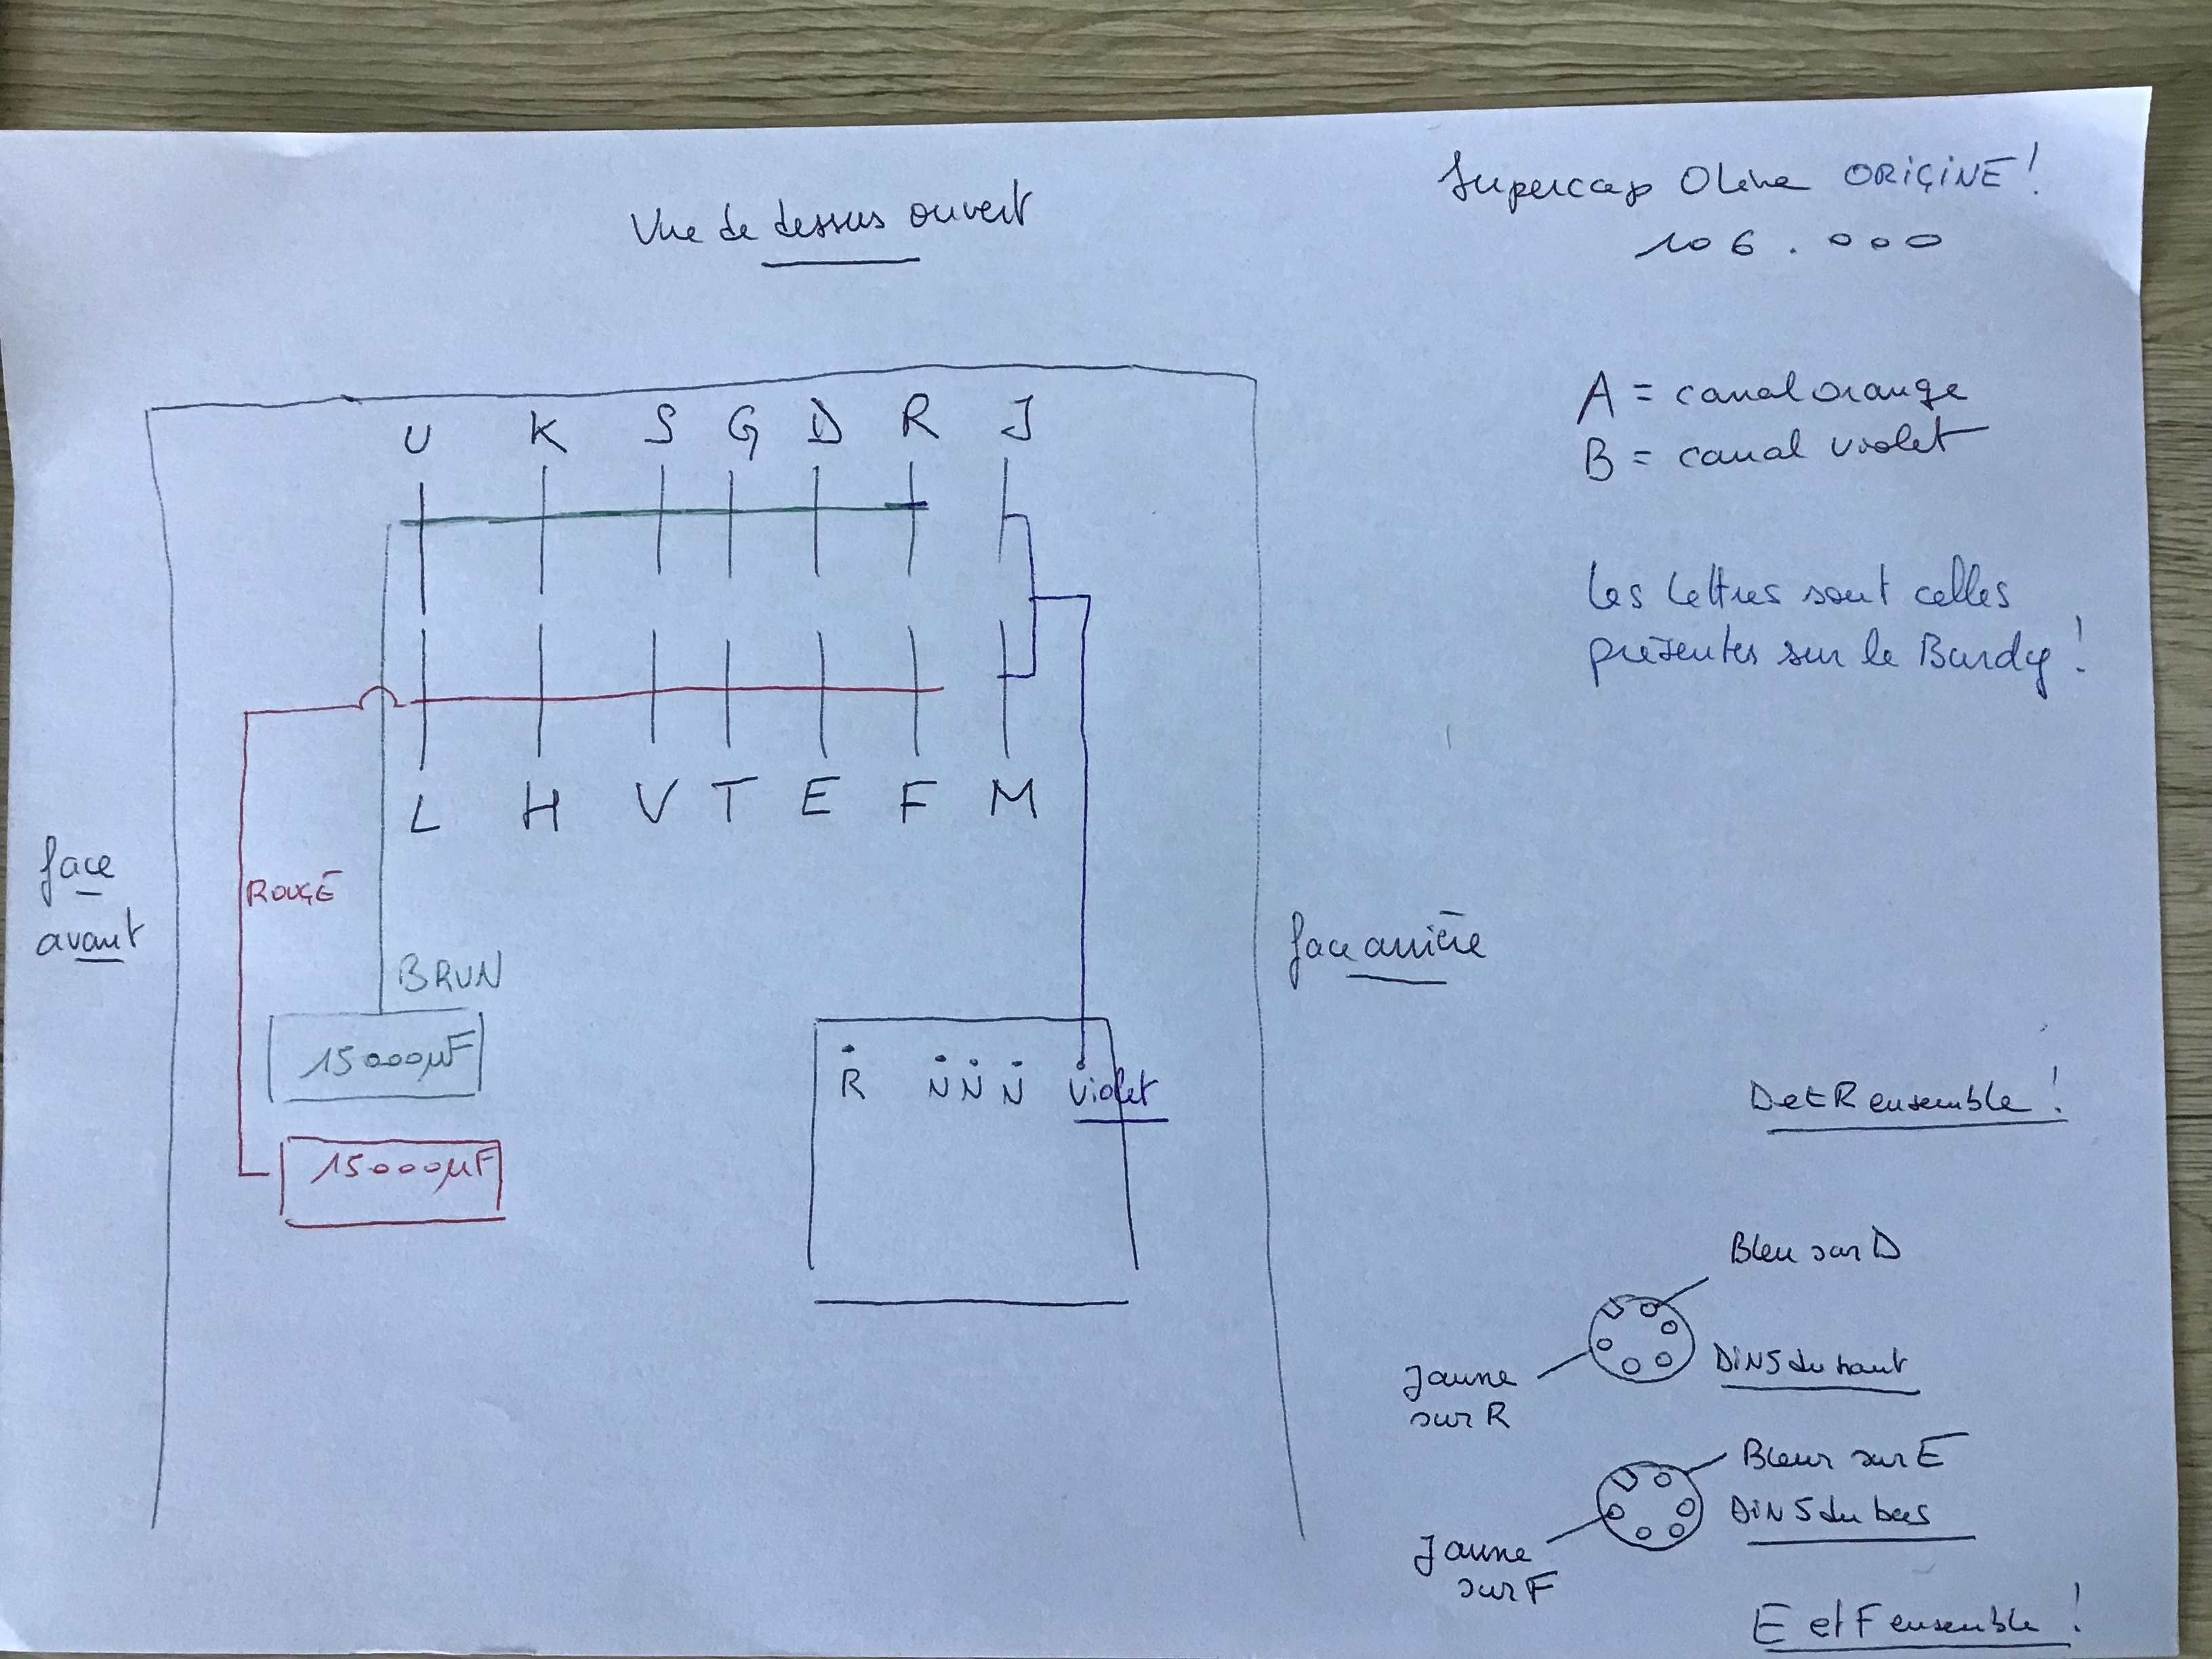 Vue de dessus ouvert
Supercap Olive ORIGINE !
106.000
A = canal orange
B = canal violet
Les lettres sont celles
présentes sur le Burdy !
U K S G D R J
L H V T E F M
face
avant
ROUGE
BRUN
15000µF
15000µF
R N N N Violet
face arrière
D et R ensemble !
Bleu sur D
DIN5 du haut
Jaune
sur R
Bleur sur E
DIN5 du bas
Jaune
sur F
E et F ensemble !